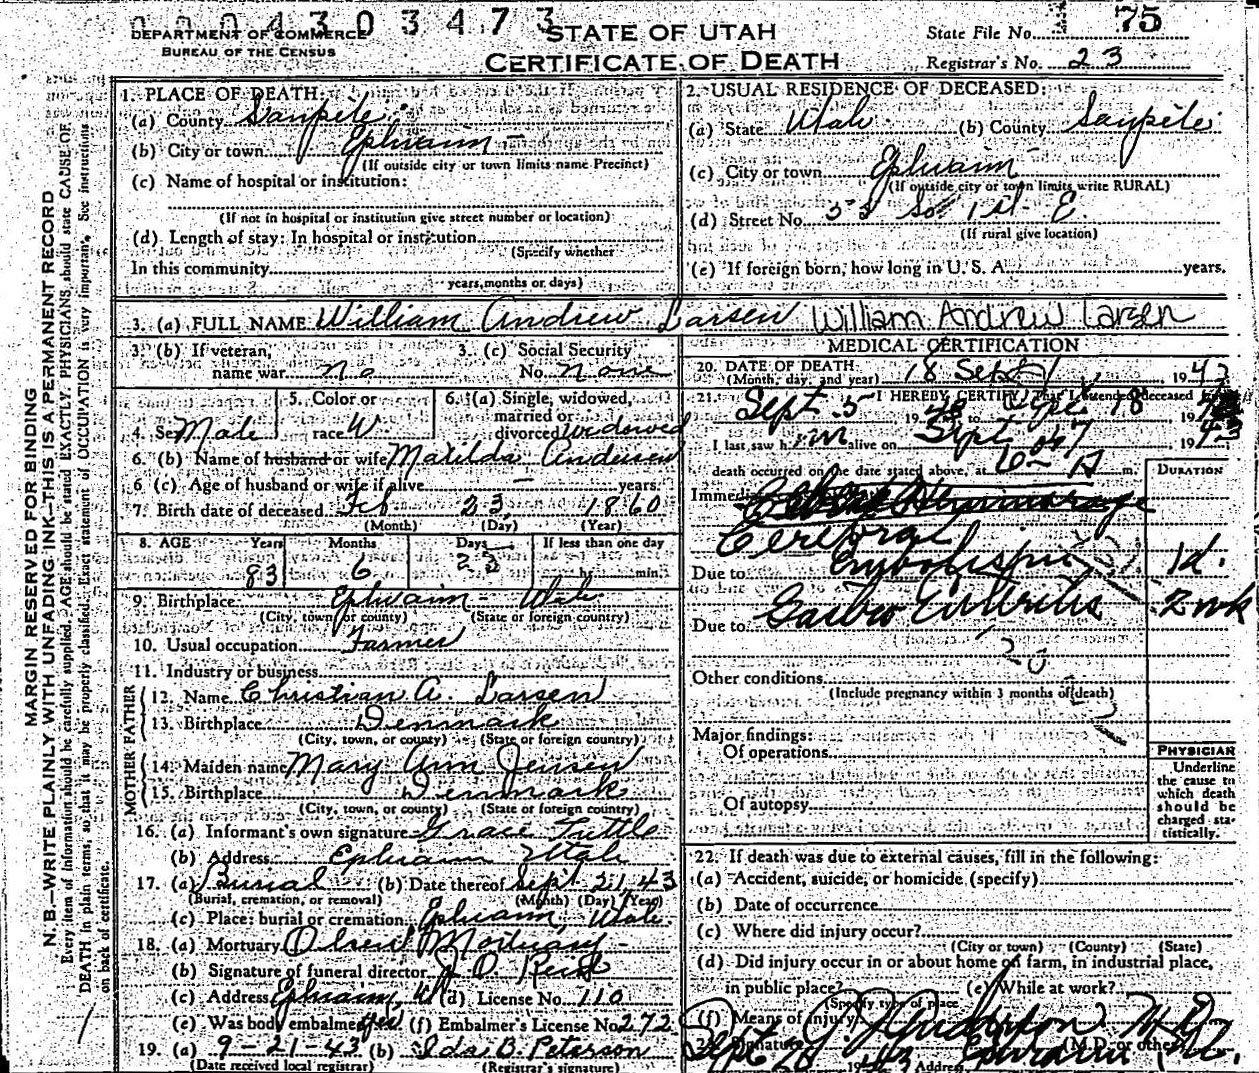 0004303473
DEPARTMENT OF COMMERCE
BUREAU OF THE CENSUS
STATE OF UTAH
CERTIFICATE OF DEATH
State File No. 75
Registrar's No. 23
MARGIN RESERVED FOR BINDING
N. B.—WRITE PLAINLY WITH UNFADING INK—THIS IS A PERMANENT RECORD
Every item of information should be carefully supplied. AGE should be stated EXACTLY. PHYSICIANS should state CAUSE OF
DEATH in plain terms, so that it may be properly classified. Exact statement of OCCUPATION is very important. See instructions
on back of certificate.
1. PLACE OF DEATH:
(a) County Sanpete
(b) City or town Ephraim
(If outside city or town limits name Precinct)
(c) Name of hospital or institution:
(If not in hospital or institution give street number or location)
(d) Length of stay: In hospital or institution
(Specify whether
In this community
years, months or days)
2. USUAL RESIDENCE OF DECEASED:
(a) State Utah (b) County Sanpete
(c) City or town Ephraim
(If outside city or town limits write RURAL)
(d) Street No. So. 1st E.
(If rural give location)
(e) If foreign born, how long in U. S. A. years.
3. (a) FULL NAME William Andrew Larsen William Andrew Larsen
3. (b) If veteran, name war no
3. (c) Social Security No. none
4. Sex Male
5. Color or race W
6. (a) Single, widowed, married or divorced widowed
6. (b) Name of husband or wife Matilda Andersen
6. (c) Age of husband or wife if alive — years.
7. Birth date of deceased Feb 23 1860
(Month) (Day) (Year)
8. AGE Years Months Days If less than one day
83 6 23 hr. min.
9. Birthplace Ephraim - Utah
(City, town, or county) (State or foreign country)
10. Usual occupation Farmer
11. Industry or business
FATHER
12. Name Christian A. Larsen
13. Birthplace Denmark
(City, town, or county) (State or foreign country)
MOTHER
14. Maiden name Mary Ann Jensen
15. Birthplace Denmark
(City, town, or county) (State or foreign country)
16. (a) Informant's own signature Grace Tuttle
(b) Address Ephraim Utah
17. (a) Burial (b) Date thereof Sept 21 43
(Burial, cremation, or removal) (Month) (Day) (Year)
(c) Place: burial or cremation Ephraim Utah.
18. (a) Mortuary Olsen Mortuary -
(b) Signature of funeral director
(c) Address Ephraim, U (d) License No. 110
(e) Was body embalmed yes (f) Embalmer's License No. 272
19. (a) 9-21-43 (b) Ida B. Peterson
(Date received local registrar) (Registrar's signature)
MEDICAL CERTIFICATION
20. DATE OF DEATH 18 Sept, 1943
(Month, day, and year)
21. I HEREBY CERTIFY, That I attended deceased from
Sept. 5 19 to Sept 18 19
I last saw him alive on Sept 1943
death occurred on the date stated above, at 10— A m.
DURATION
Cerebral
Due to Embolism 1 d.
Due to Gastro Enteritis 2 wk
Other conditions
(Include pregnancy within 3 months of death)
Major findings:
Of operations
Of autopsy
PHYSICIAN
Underline
the cause to
which death
should be
charged sta-
tistically.
22. If death was due to external causes, fill in the following:
(a) Accident, suicide, or homicide (specify)
(b) Date of occurrence
(c) Where did injury occur?
(City or town) (County) (State)
(d) Did injury occur in or about home or farm, in industrial place,
in public place? (e) While at work?
(Specify type of place
(f) Means of injury
Signature Anderson M.D.
(M.D. or other)
Sept 20 1943 Address Ephraim